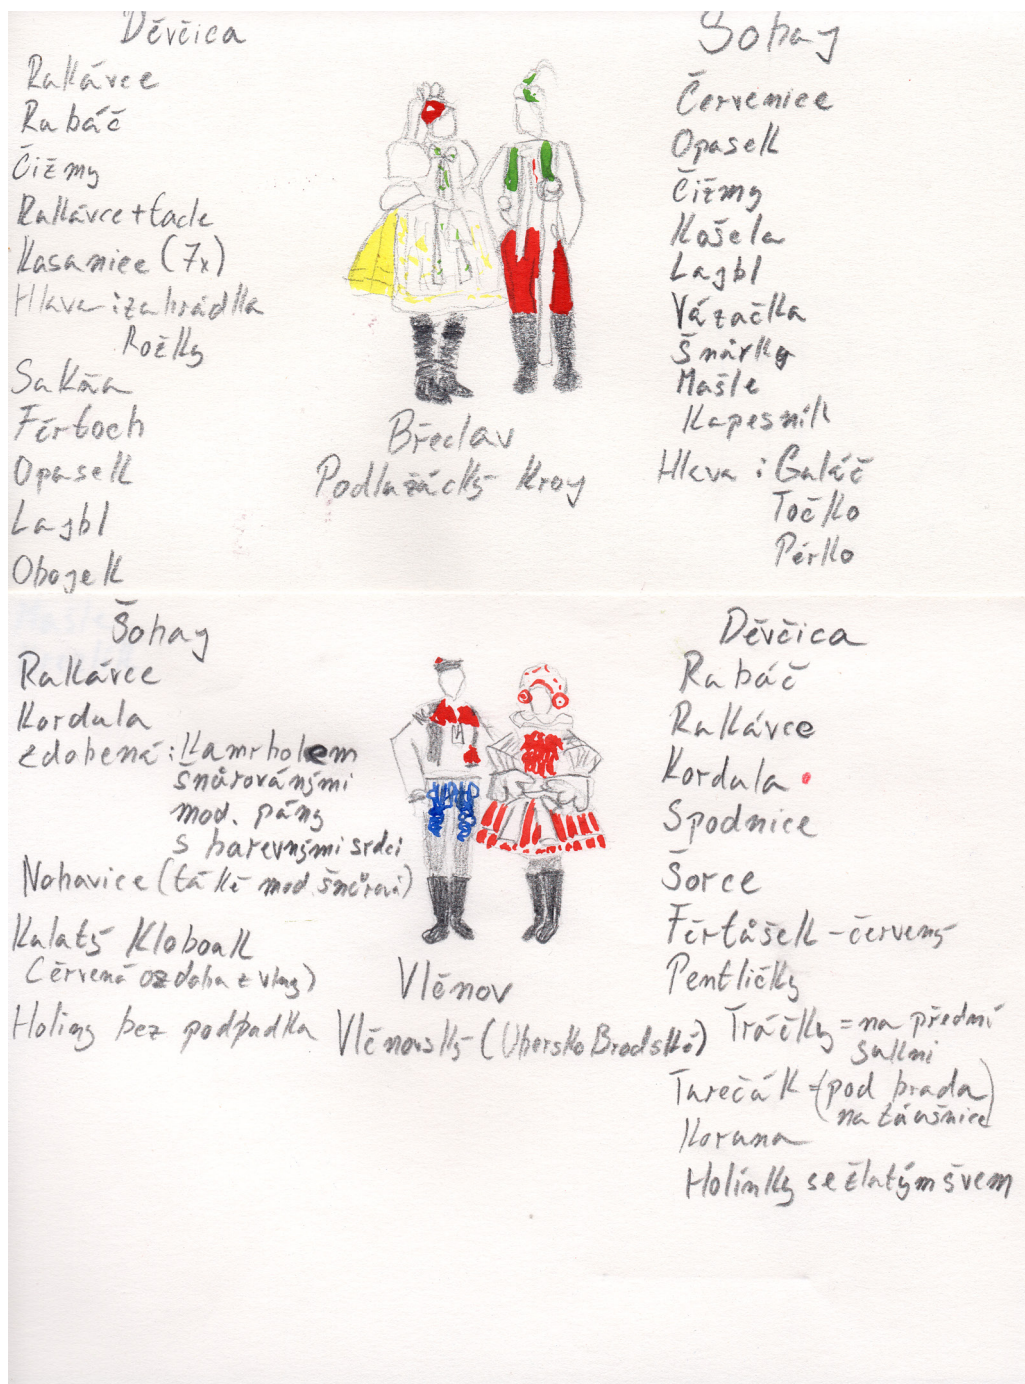 Děvčica
Rukávce
Rubáč
Čižmy
Rukávce+tacle
Kasanice (7x)
Hlava: zahrádka
Rožky
Sukňa
Fěrtoch
Opasek
Lajbl
Obojek
Šohaj
Červenice
Opasek
Čižmy
Košela
Lajbl
Vázačka
Šnůrky
Mašle
Kapesník
Hlava: Guláč
Točko
Pérko
Břeclav
Podlužácký kroj
Šohaj
Rukávce
Kordula
zdobená: Kamrholem
šnůrovánými
mod. pány
s barevnými srdci
Nohavice (také mod. šnůrová)
Kulatý Klobouk
Červená ozdoba z vlny)
Holiny bez podpadka
Vlčnov
Vlčnovský (Uhersko Brodské)
Děvčica
Rubáč
Rukávce
Kordula
Spodnice
Šorce
Fěrtůšek - červený
Pentličky
Tráčky = na přední
sukni
Turečák = (pod brada)
na záušnice
Koruna
Holínky se žlatým švem